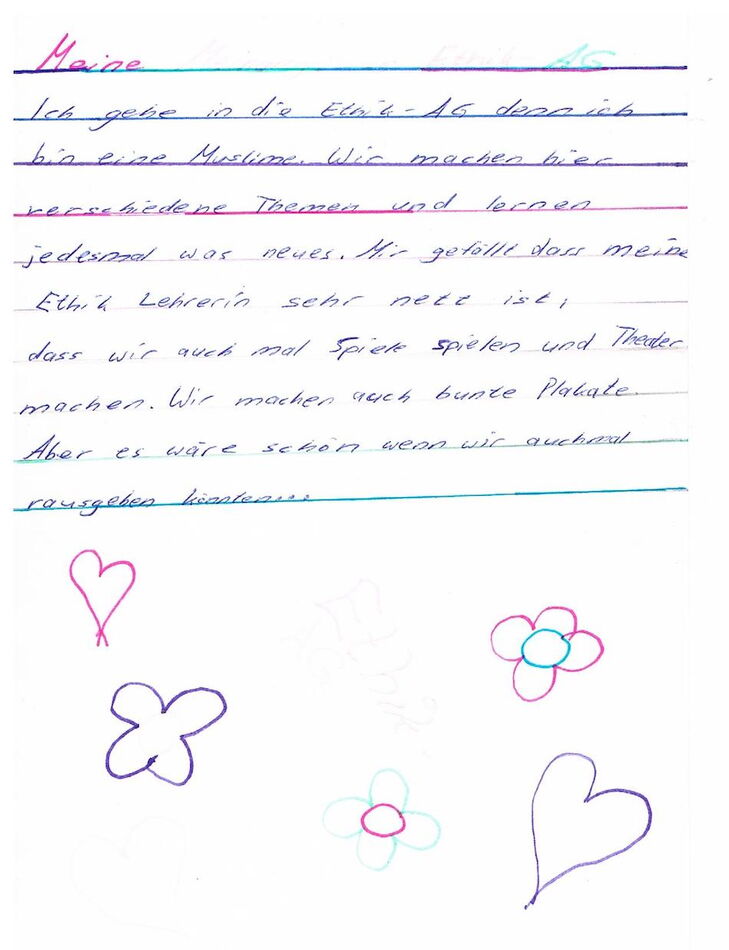 Meine Ethik AG
Ich gehe in die Ethik-AG denn ich
bin eine Muslime. Wir machen hier
verschiedene Themen und lernen
jedesmal was neues. Mir gefällt dass meine
Ethik Lehrerin sehr nett ist,
dass wir auch mal Spiele spielen und Theater
machen. Wir machen auch bunte Plakate.
Aber es wäre schön wenn wir auchmal
rausgehen könnten...
Ethik